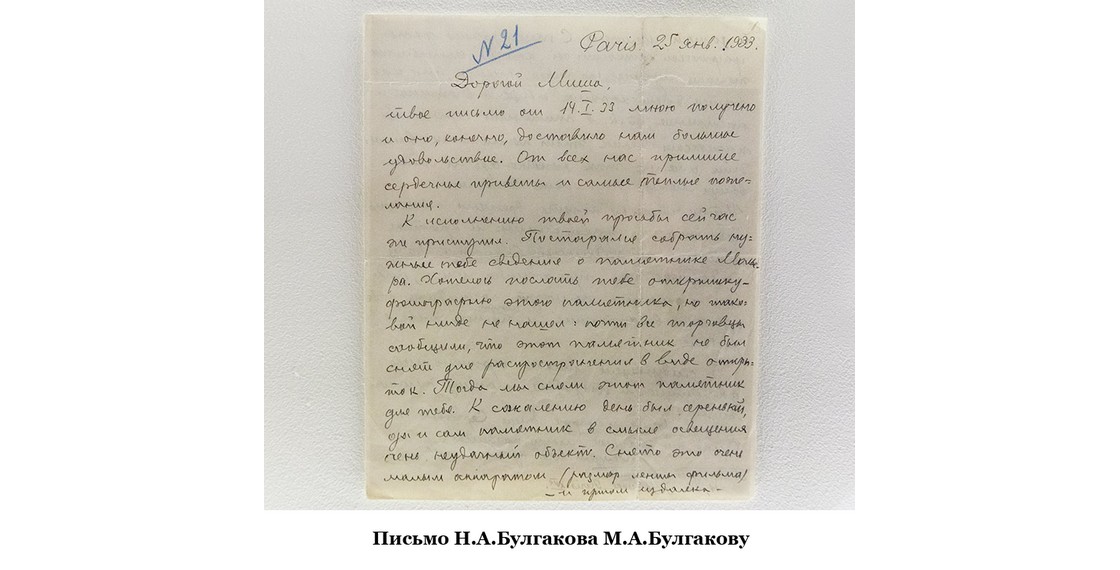 N 21
Paris 25 янв. 1933.
Дорогой Миша,
твое письмо от 14.I.33 мною получено
и оно, конечно, доставило нам большое
удовольствие. От всех нас примите
сердечные приветы и самые теплые поже=
лания.
К исполнению твоей просьбы сейчас
же приступил. Постарался собрать ну=
жные тебе сведения о памятнике Молье
ра. Хотелось послать тебе открытку-
фотографию этого памятника, но тако=
вой нигде не нашел: почти все торговцы
сообщили, что этот памятник не был
снят для распространения в виде откры=
ток. Тогда мы сняли этот памятник
для тебя. К сожалению день был серенький,
да и сам памятник в смысле освещения
очень неудачный объект. Снято это очень
малым аппаратом (размер ленты фильма)
– и притом издалека –
Письмо Н.А.Булгакова М.А.Булгакову